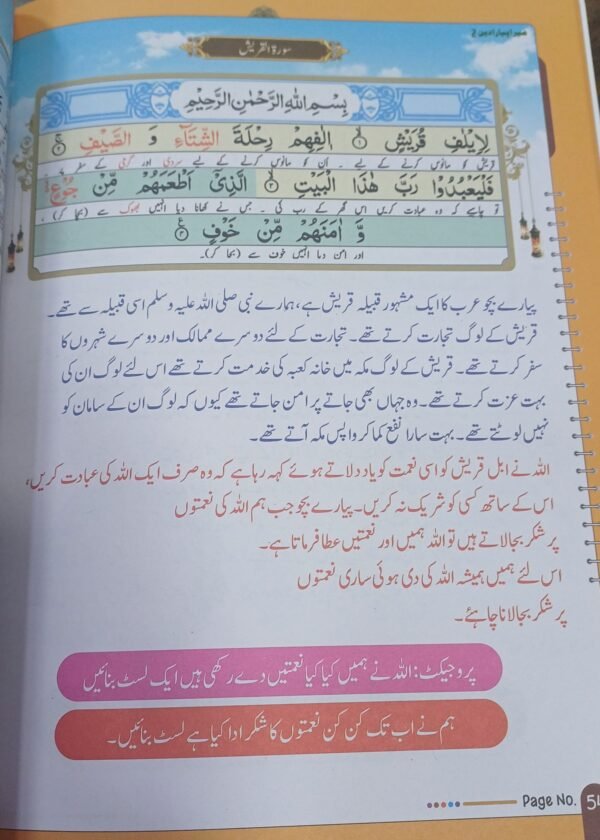 میرا پیارا دین 2
سورۃ القریش
بِسْمِ اللهِ الرَّحْمٰنِ الرَّحِيْمِ
لِاِيْلٰفِ قُرَيْشٍ ۙ﴿۱﴾ اٖلٰفِهِمْ رِحْلَةَ الشِّتَآءِ وَ الصَّيْفِ ۚ﴿۲﴾
قریش کو مانوس کرنے کے لیے ۔ ان کو مانوس کرنے کے لیے سردی اور گرمی کے سفر پر
فَلْيَعْبُدُوْا رَبَّ هٰذَا الْبَيْتِ ۙ﴿۳﴾ الَّذِيْٓ اَطْعَمَهُمْ مِّنْ جُوْعٍ
تو چاہیے کہ وہ عبادت کریں اس گھر کے رب کی ۔ جس نے کھانا دیا انہیں بھوک سے (بچا کر) ،
وَّ اٰمَنَهُمْ مِّنْ خَوْفٍ ﴿۴﴾
اور امن دیا انہیں خوف سے (بچا کر)۔
پیارے بچو عرب کا ایک مشہور قبیلہ قریش ہے، ہمارے نبی صلی اللہ علیہ وسلم اسی قبیلہ سے تھے۔
قریش کے لوگ تجارت کرتے تھے۔ تجارت کے لئے دوسرے ممالک اور دوسرے شہروں کا
سفر کرتے تھے۔ قریش کے لوگ مکہ میں خانہ کعبہ کی خدمت کرتے تھے اس لئے لوگ ان کی
بہت عزت کرتے تھے۔ وہ جہاں بھی جاتے پر امن جاتے تھے کیوں کہ لوگ ان کے سامان کو
نہیں لوٹتے تھے۔ بہت سارا نفع کما کر واپس مکہ آتے تھے۔
اللہ نے اہل قریش کو اسی نعمت کو یاد دلاتے ہوئے کہہ رہا ہے کہ وہ صرف ایک اللہ کی عبادت کریں،
اس کے ساتھ کسی کو شریک نہ کریں۔ پیارے بچو جب ہم اللہ کی نعمتوں
پر شکر بجالاتے ہیں تو اللہ ہمیں اور نعمتیں عطا فرماتا ہے۔
اس لئے ہمیں ہمیشہ اللہ کی دی ہوئی ساری نعمتوں
پر شکر بجالانا چاہئے۔
پروجیکٹ: اللہ نے ہمیں کیا کیا نعمتیں دے رکھی ہیں ایک لسٹ بنائیں
ہم نے اب تک کن کن نعمتوں کا شکر ادا کیا ہے لسٹ بنائیں۔
Page No.